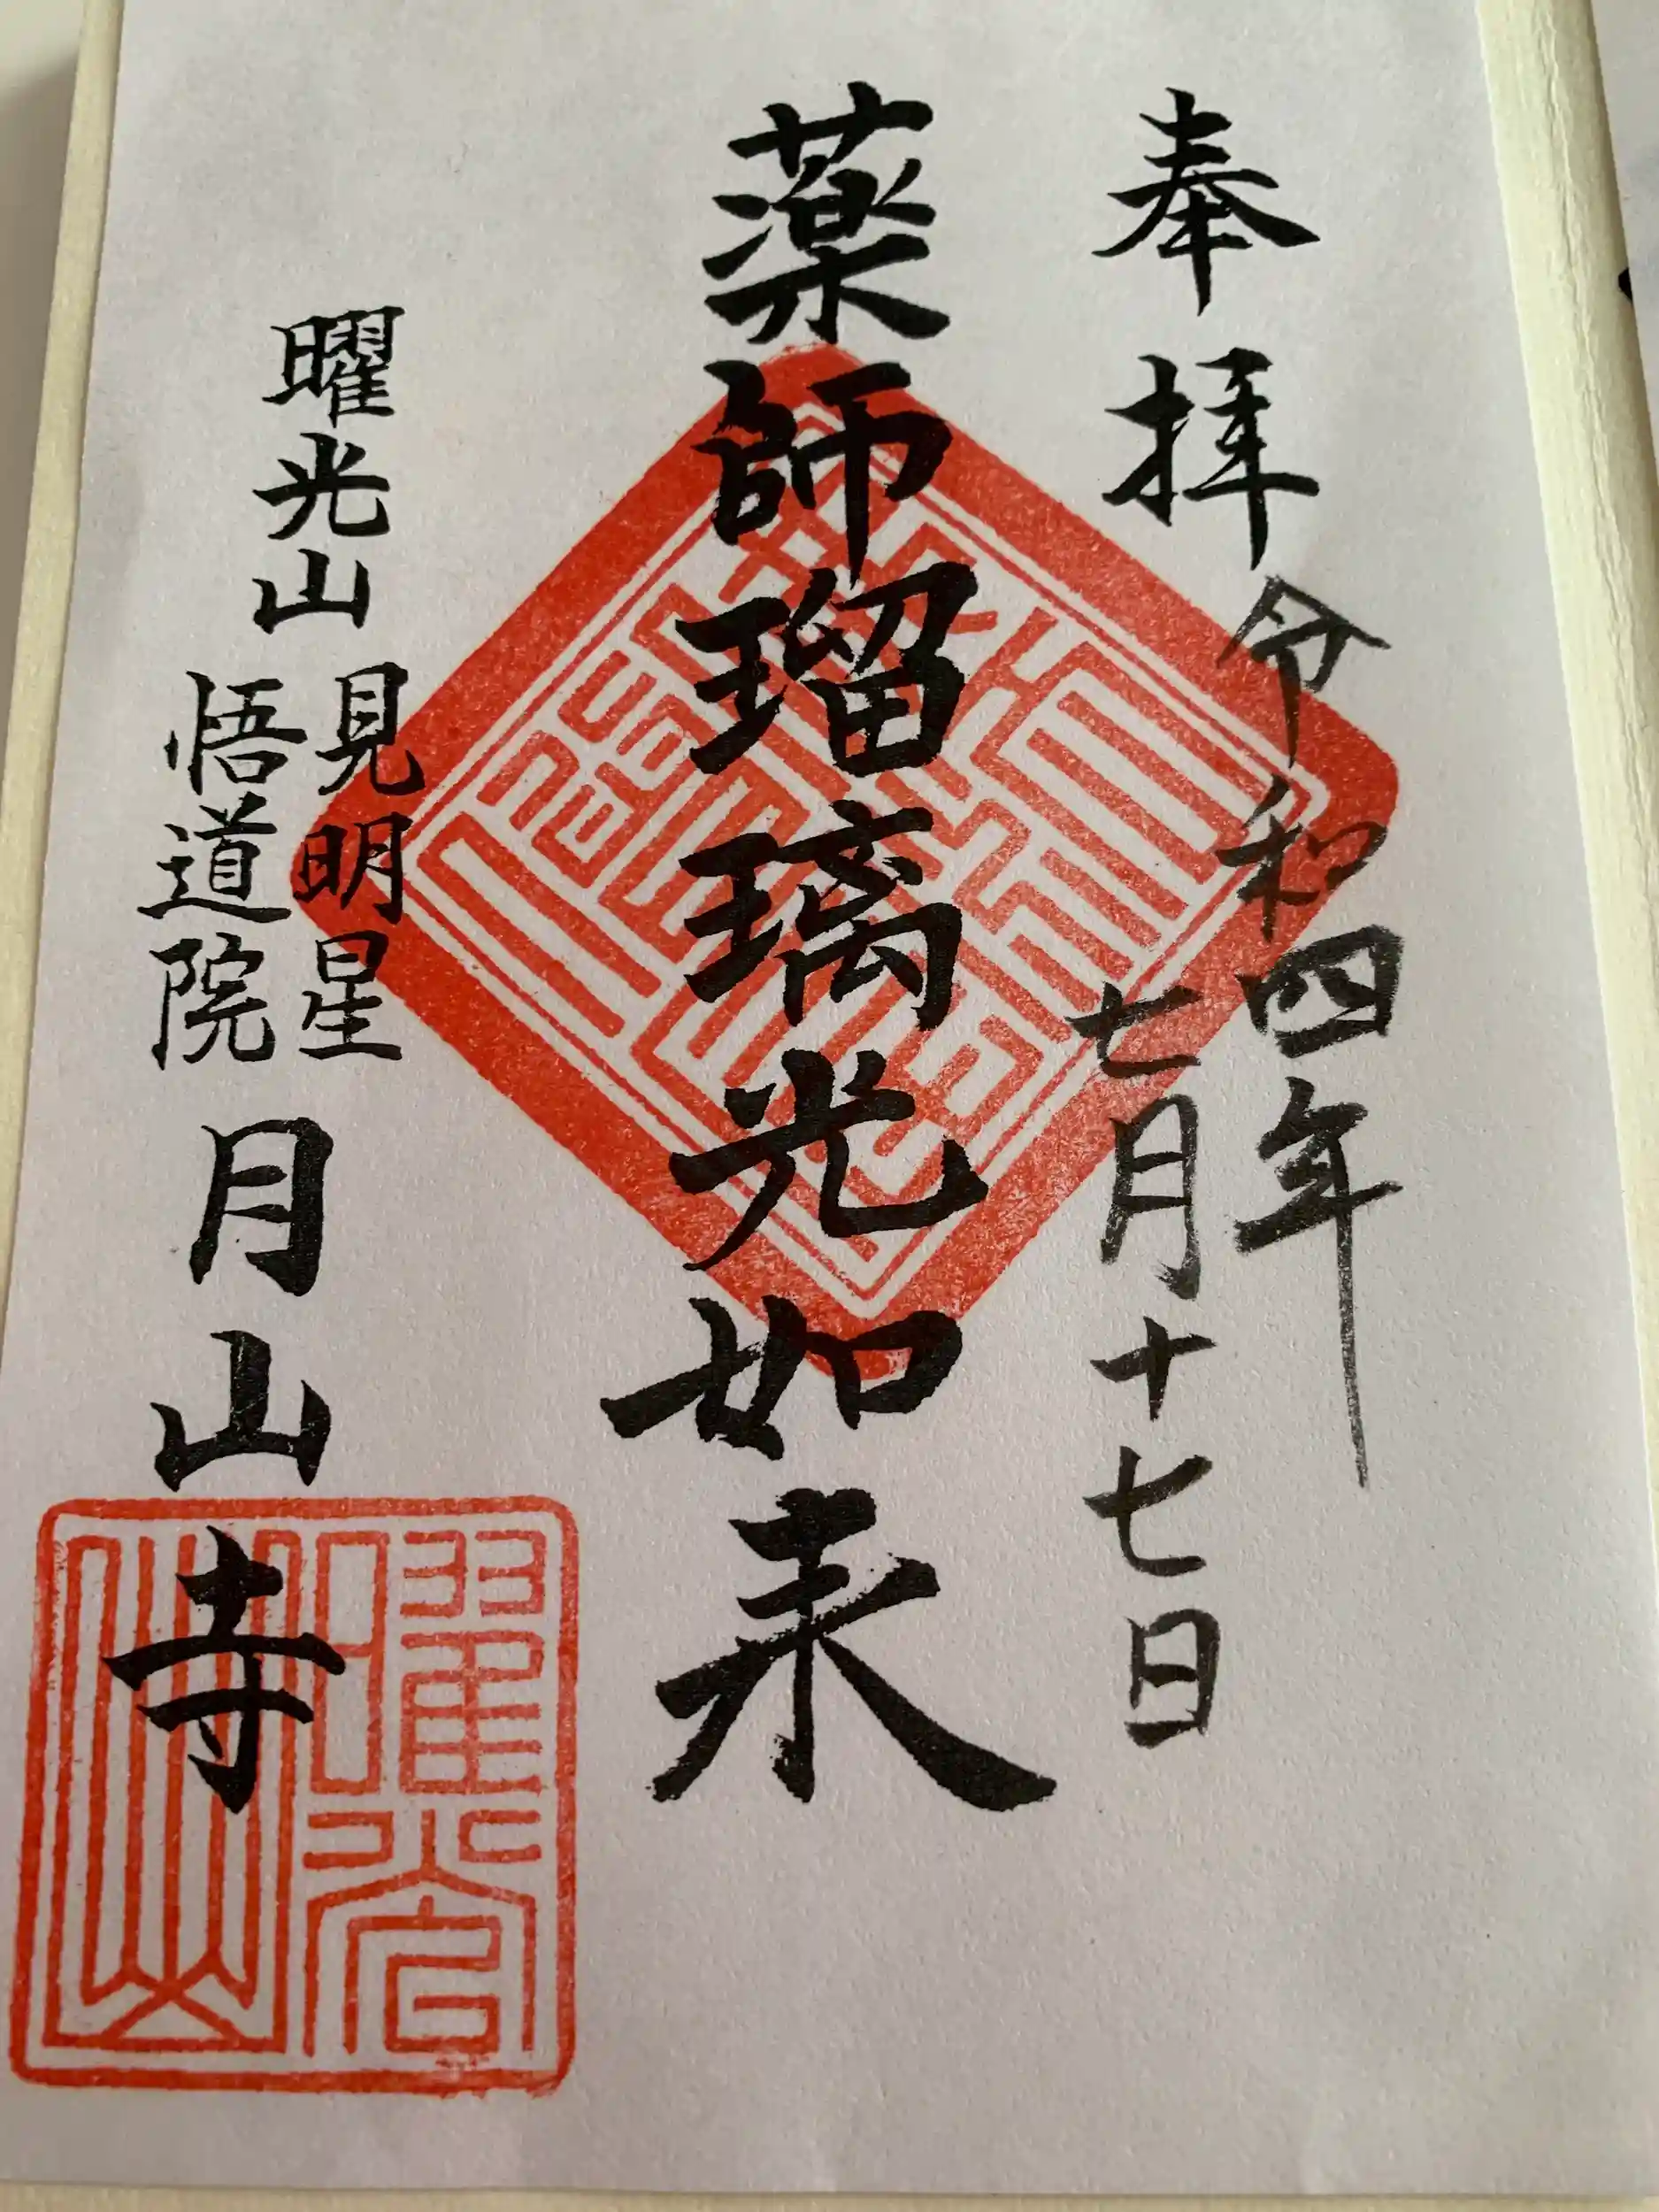 奉拝
令和四年
七月十七日
薬師瑠璃光如来
曜光山
見明星
悟道院
月山寺
曜光山